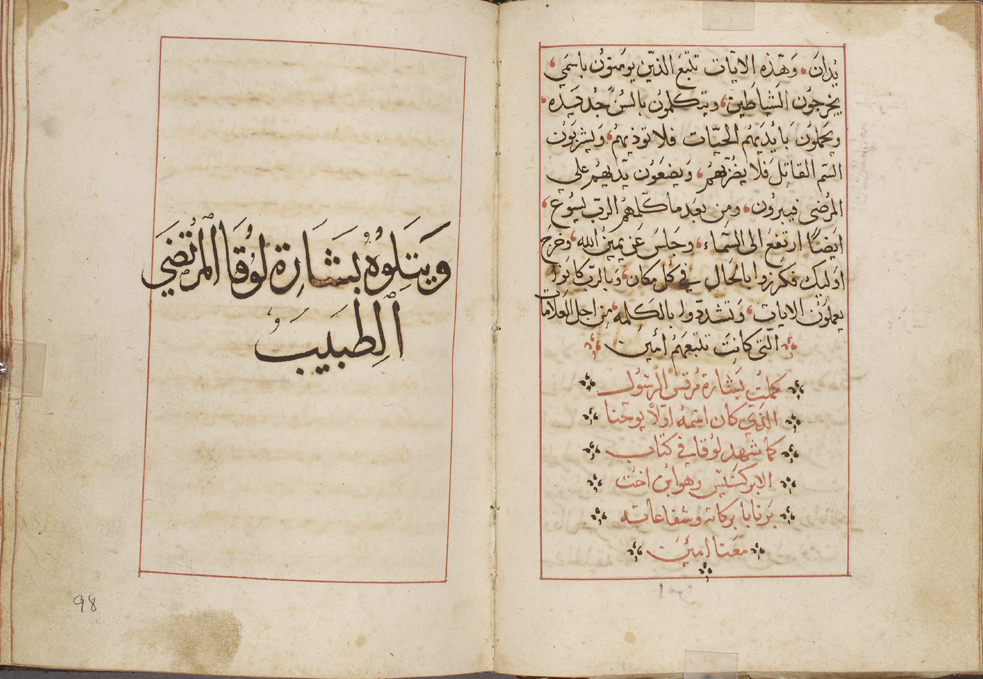 يدان، وهذه الايات تتبع الذين يومنون باسمي
يخرجون الشياطين، ويتكلمون بالسن جديده،
ويحملون بايديهم الحيات فلا توذيهم، ويشربون
السم القاتل فلا يضرهم، ويضعون يديهم على
المرضى فيبرون، ومن بعد ما كلمهم الرب يسوع،
ايضا ارتفع الى السماء، وجلس عن يمين الله، وخرج
اوليك فكرزوا بالحال في كل مكان، وبالرب كانوا
يعملون الايات، وتشددوا بالكلمه، من اجل العلامات
التي كانت تتبعهم امين
كملت بشارة مرقس الرسول
الذي كان اسمه اولا يوحنا
كما شهد لوقا في كتاب
الابركسيس وهو ابن اخت
برنابا بركاته وشفاعاته
معنا امين
ويتلوه بشارة لوقا المرتضي
الطبيب
98